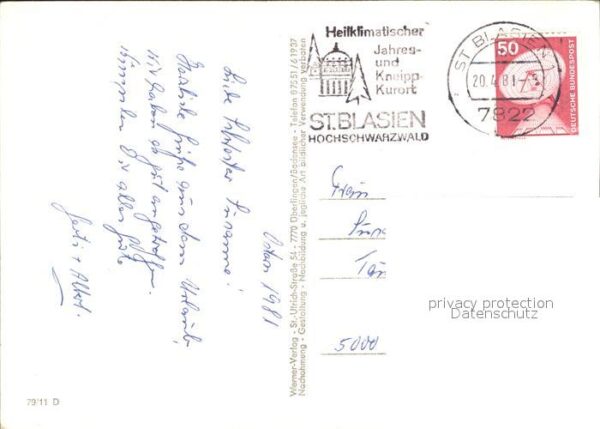 Heilklimatischer
Jahres-
und
Kneipp-
Kurort
ST. BLASIEN
HOCHSCHWARZWALD
ST BLASIEN 1
20.4.81-
7822
50
DEUTSCHE BUNDESPOST
Ostern 1981
Liebe Schwester Susanne!
Herzliche Grüße aus dem Urlaub,
wir haben es gut angetroffen.
Wünschen Dir alles Gute
Gerti + Albert.
Werner-Verlag - St.-Ulrich-Straße 54 - 7770 Überlingen/Bodensee - Telefon 07551/61937
Nachahmung - Gestaltung - Nachbildung u. jegliche Art bildlicher Verwendung verboten
5000
privacy protection
Datenschutz
79'11 D